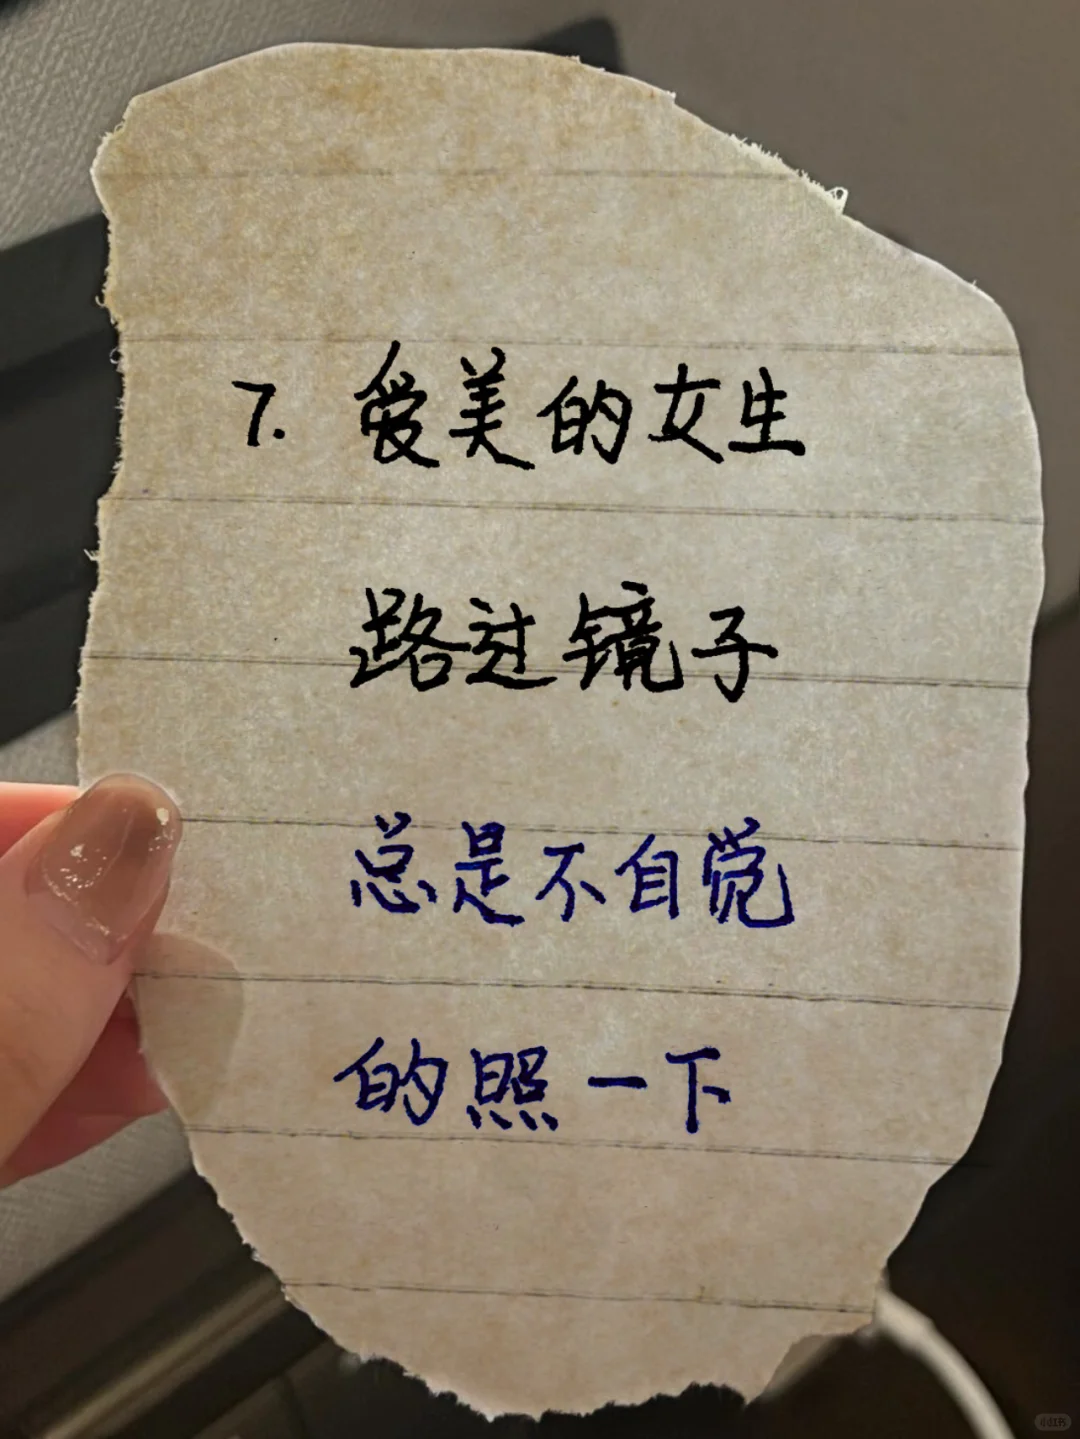 7. 爱美的女生
路过镜子
总是不自觉
的照一下
小红书